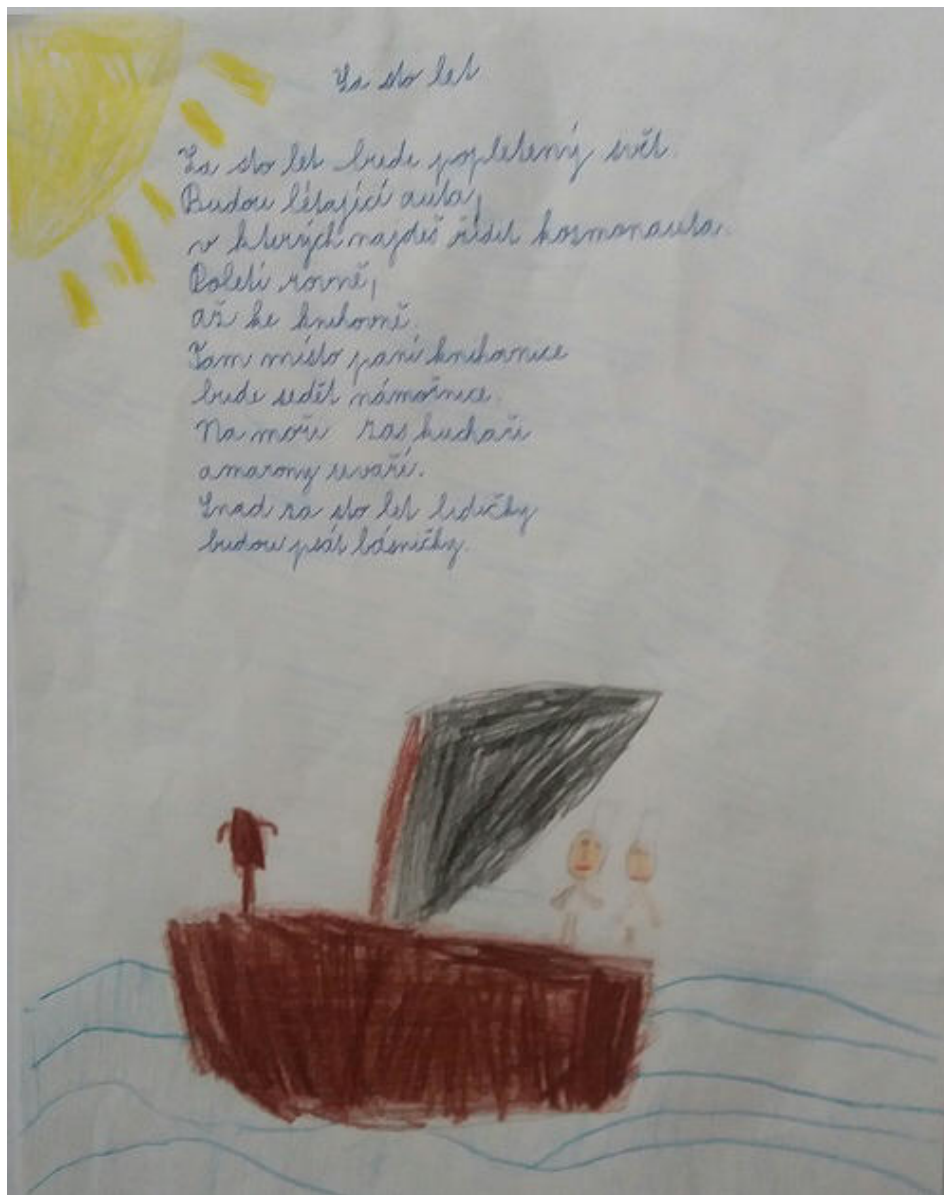 Za sto let
Za sto let bude popletený svět.
Budou létající auta,
v kterých najdeš řídit kosmonauta.
Poletí rovně,
až ke knihovně.
Tam místo paní knihovnice
bude sedět námořnice.
Na moři zas kuchaři
amarony uvaří.
Snad za sto let lidičky
budou psát básničky.